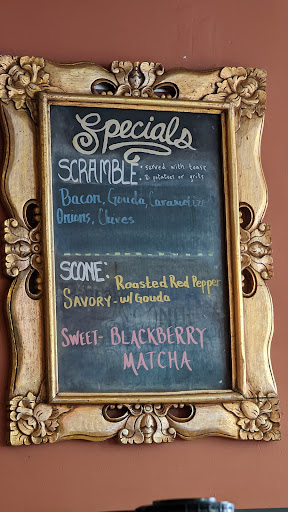 Specials
SCRAMBLE • served with toast
& potatoes or grits
Bacon, Gouda, Caramelized
Onions, Chives
SCONE: Roasted Red Pepper
SAVORY - w/ Gouda
SWEET - BLACKBERRY
MATCHA